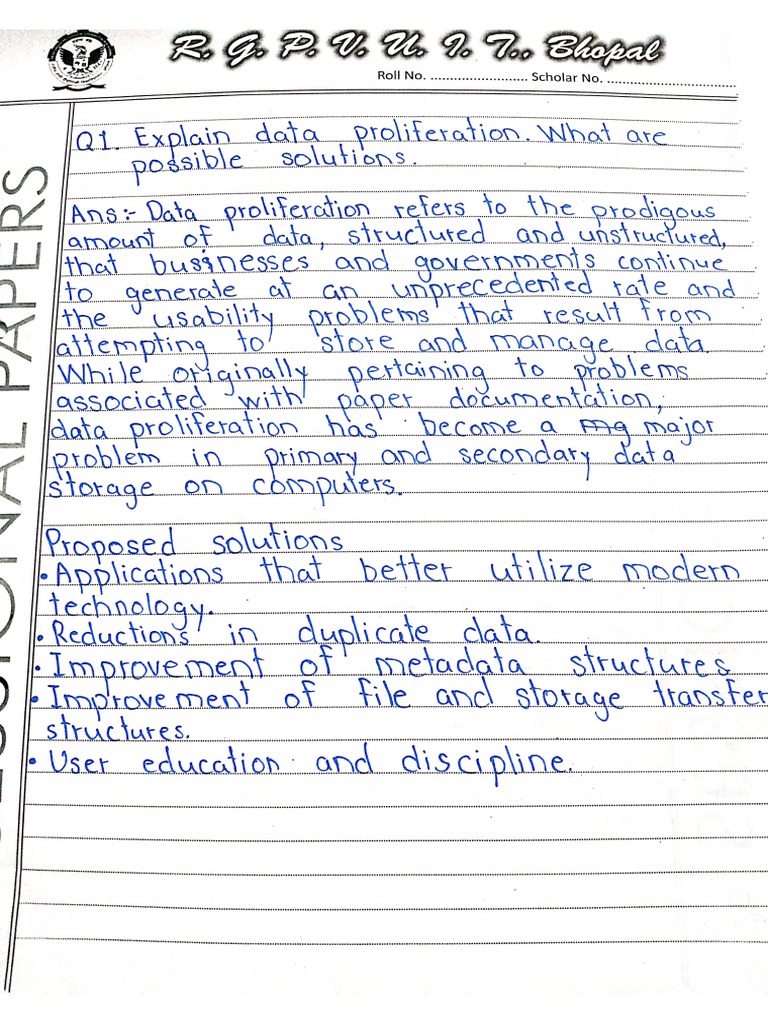 R. G. P. V. U. I. T., Bhopal
Roll No. .......................... Scholar No. ..................................
Q1. Explain data proliferation. What are
possible solutions.
Ans:- Data proliferation refers to the prodigous
amount of data, structured and unstructured,
that businesses and governments continue
to generate at an unprecedented rate and
the usability problems that result from
attempting to store and manage data.
While originally pertaining to problems
associated with paper documentation,
data proliferation has become a major
problem in primary and secondary data
storage on computers.
Proposed solutions
• Applications that better utilize modern
technology.
• Reductions in duplicate data.
• Improvement of metadata structures
• Improvement of file and storage transfer
structures.
• User education and discipline.
SESSIONAL PAPERS